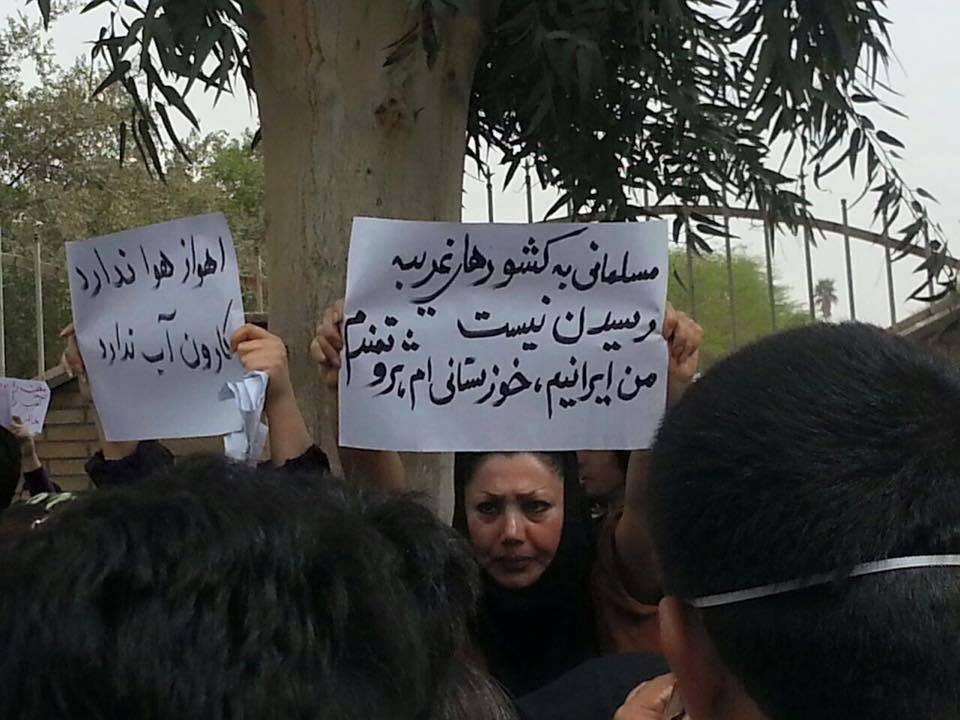 اهواز هوا ندارد
کارون آب ندارد
مسلمانی به کشورهای غریبه
رسیدن نیست
من ایرانیم، خوزستانی ام, ثروتمندم